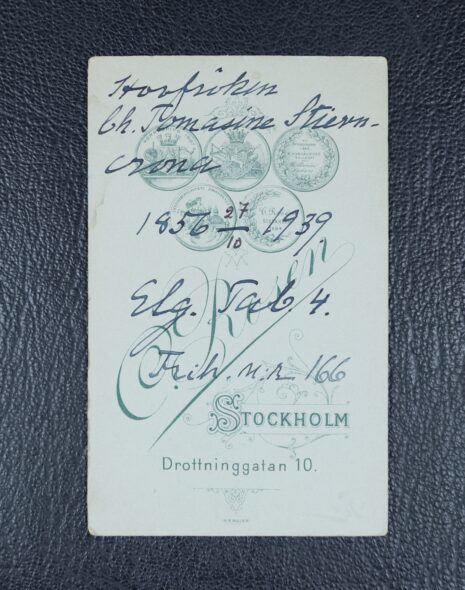 Hovfröken
Ch. Tomasine Stiern-
crona
1856 27/10 1939
Elg. Tab. 4.
Rosén
Frih. n:r 166
STOCKHOLM
Drottninggatan 10.